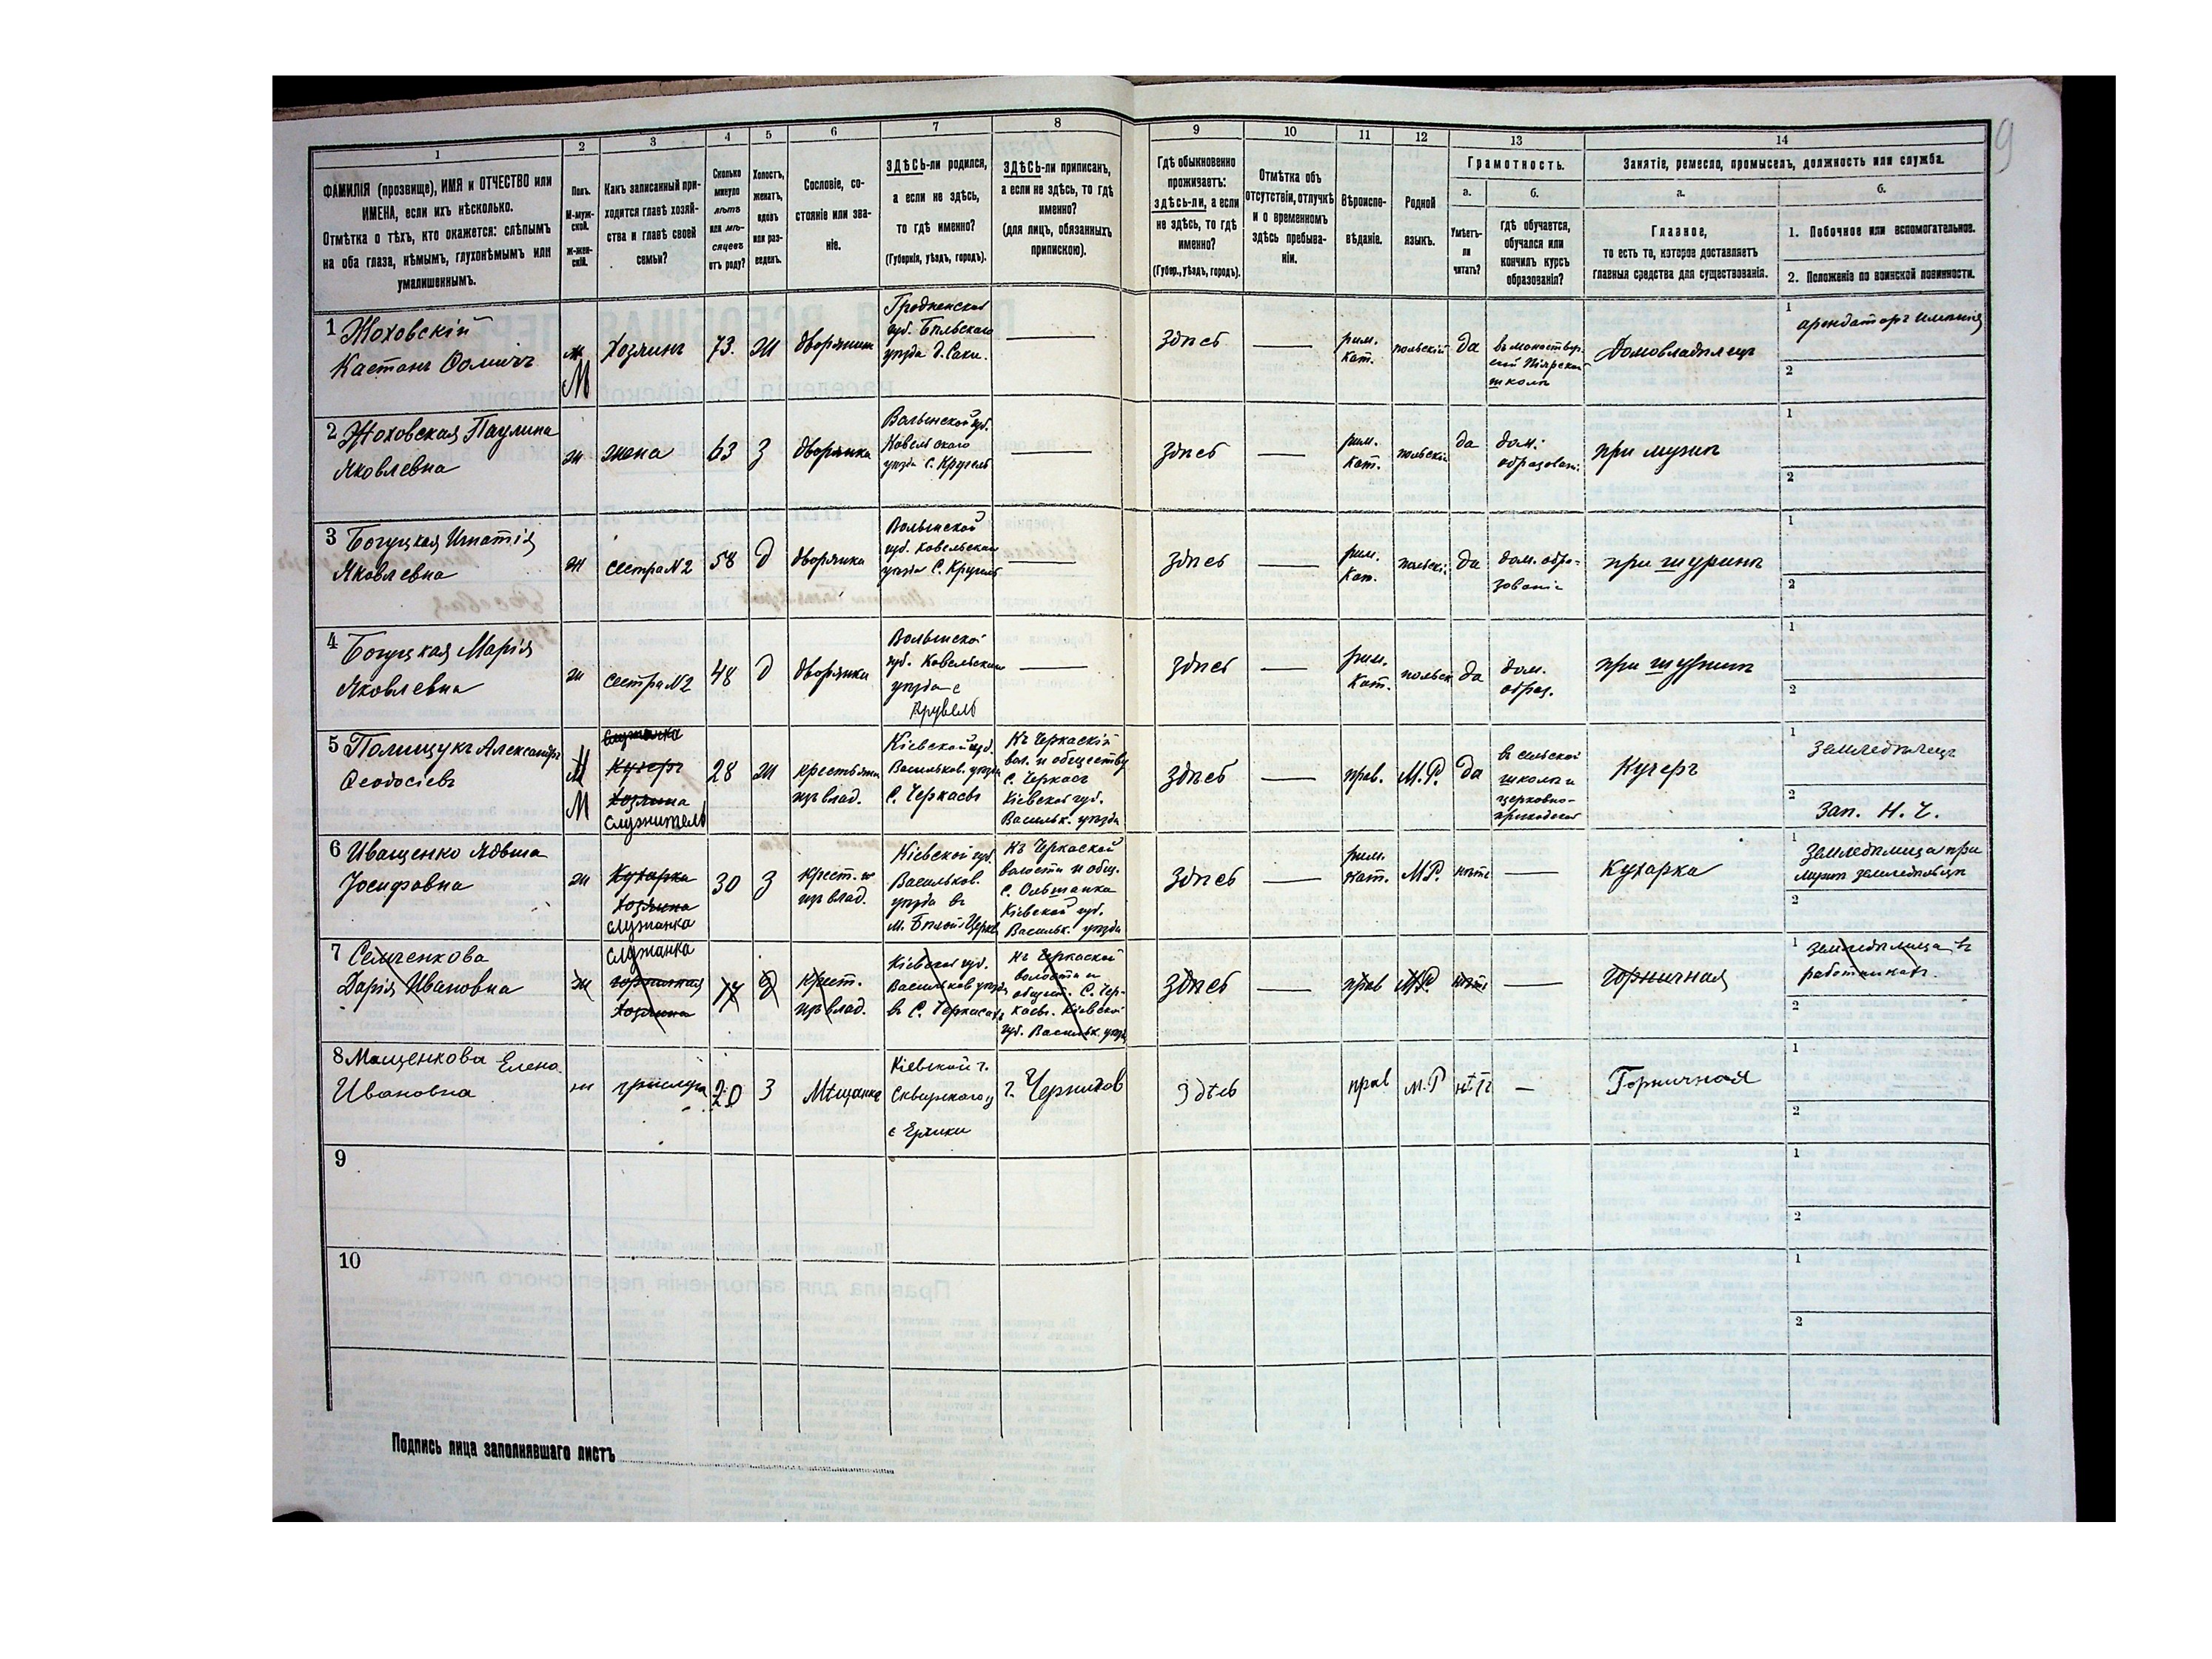 9
1 2 3 4 5 6 7 8 9 10 11 12 13 14
ФАМИЛІЯ (прозвище), ИМЯ и ОТЧЕСТВО или
ИМЕНА, если ихъ нѣсколько.
Отмѣтка о тѣхъ, кто окажется: слѣпымъ
на оба глаза, нѣмымъ, глухонѣмымъ или
умалишеннымъ.
Полъ.
М-муж-
ской.
Ж-жен-
скій.
Какъ записанный при-
ходится главѣ хозяй-
ства и главѣ своей
семьи?
Сколько
минуло
лѣтъ
или мѣ-
сяцевъ
отъ роду?
Холостъ,
женатъ,
вдовъ
или раз-
веденъ.
Сословіе, со-
стояніе или зва-
ніе.
ЗДѢСЬ-ли родился,
а если не здѣсь,
то гдѣ именно?
(Губернія, уѣздъ, городъ).
ЗДѢСЬ-ли приписанъ,
а если не здѣсь, то гдѣ
именно?
(для лицъ, обязанныхъ
припискою).
Гдѣ обыкновенно
проживаетъ:
здѣсь-ли, а если
не здѣсь, то гдѣ
именно?
(Губер., уѣздъ, городъ).
Отмѣтка объ
отсутствіи, отлучкѣ
и о временномъ
здѣсь пребыва-
ніи.
Вѣроиспо-
вѣданіе.
Родной
языкъ.
Грамотность.
а.
Умѣетъ-
ли
читать?
б.
гдѣ обучается,
обучался или
кончилъ курсъ
образованія?
Занятіе, ремесло, промыселъ, должность или служба.
а.
Главное,
то есть то, которое доставляетъ
главныя средства для существованія.
б.
1. Побочное или вспомогательное.
2. Положеніе по воинской повинности.
1 Жоховскій
Каетанъ Ѳомичъ
М
Хозяинъ
73.
Ж
дворянинъ
Гродненской
губ. Бѣльскаго
уѣзда д. Саки.
здѣсь
рим.
Кат.
польскій
да
школѣ
Домовладѣлецъ
1
арендаторъ имѣнія
2
2 Жоховская Паулина
Яковлевна
ж
жена
63
З
дворянка
Волынской губ.
Ковельскаго
уѣзда С. Кругель
здѣсь
рим.
Кат.
польскій
да
дом.
образован.
при мужѣ
1
2
3 Богуцкая Игнатія
Яковлевна
ж
сестра №2
58
Д
дворянка
Волынской
губ. Ковельскаго
уѣзда С. Кругель
здѣсь
рим.
Кат.
польскій
да
дом. обра-
зованіе
при шуринѣ
1
2
4 Богуцкая Марія
Яковлевна
ж
сестра №2
48
Д
дворянка
Волынской
губ. Ковельскаго
уѣзда с
здѣсь
рим.
Кат.
польск.
да
дом.
образ.
при шуринѣ
1
2
5 Полищукъ Александръ
Ѳеодосіевъ
М
М
Служанка
Кучеръ
Хозяина
Служитель
28
ж
крестьян.
изъ влад.
Кіевской губ.
Васильков. уѣзда
С. Черкасъ
Къ Черкаскій
вол. и обществу
С. Черкасъ
Кіевской губ.
Васильк. уѣзда
здѣсь
прав.
М.Р.
да
въ сельской
школѣ и
церковно-
приходской
Кучеръ
1
земледѣлецъ
2
Зап. Н. Ч.
6 Иващенко Ядвига
Іосифовна
ж
Кухарка
Хозяина
служанка
30
З
крест.
изъ влад.
Кіевской губ.
Васильков.
уѣзда въ
М. Бѣлой Церкв
Къ Черкаской
волости и общ.
С. Ольшанка
Кіевской губ.
Васильк. уѣзда
здѣсь
рим.
кат.
М.Р.
нѣтъ
Кухарка
1
земледѣлица при
мужѣ земледѣльцѣ
2
7 Семченкова
Дарія Ивановна
ж
служанка
горничная
Хозяина
17
Д
Крест.
изъ влад.
Кіевской губ.
Васильков уѣзда
въ С. Черкасахъ
Къ Черкаской
волости и
общест. С. Чер-
касъ. Кіевской
губ. Васильк. уѣзда
здѣсь
прав
М.Р.
нѣтъ
горничная
1
земледѣлица въ
работникахъ.
2
8 Мащенкова Елена
Ивановна
ж
прислуга
20
З
Мѣщанка
Кіевской г.
Сквирскаго у
с Ерчики
г. Черниговъ
Здѣсь
прав
М.Р
нѣтъ
Горничная
1
2
9
1
2
10
1
2
Подпись лица заполнявшаго листъ